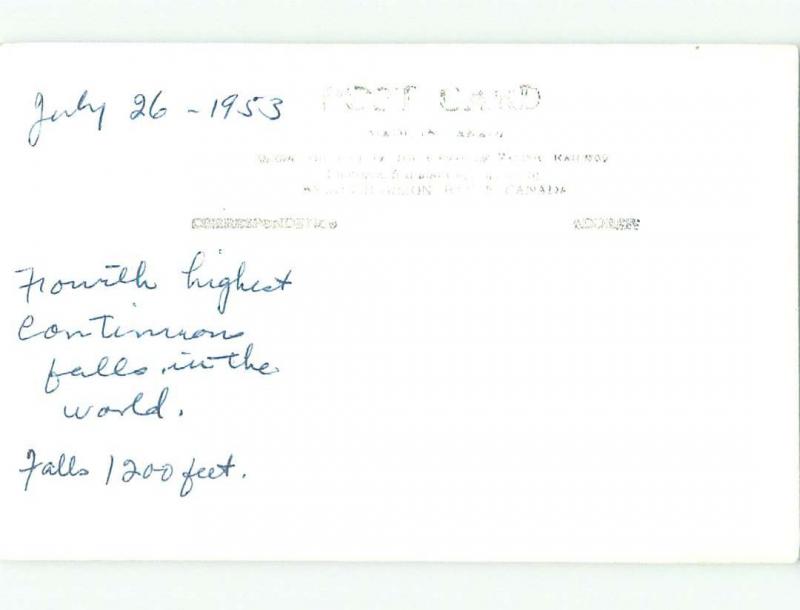 July 26 - 1953
POST CARD
MADE IN CANADA
RAILWAY
CANADA
CORRESPONDENCE
ADDRESS
Fourth highest
continuous
falls in the
world.
Falls 1200 feet.